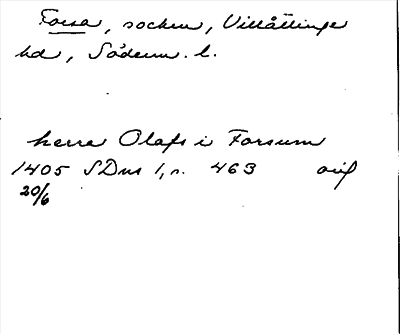 Forsa, socken, Villåttinge
hd, Söderm. l.
herre Olafs i Forsum
1405 SDns 1, s. 463 orig
20/6